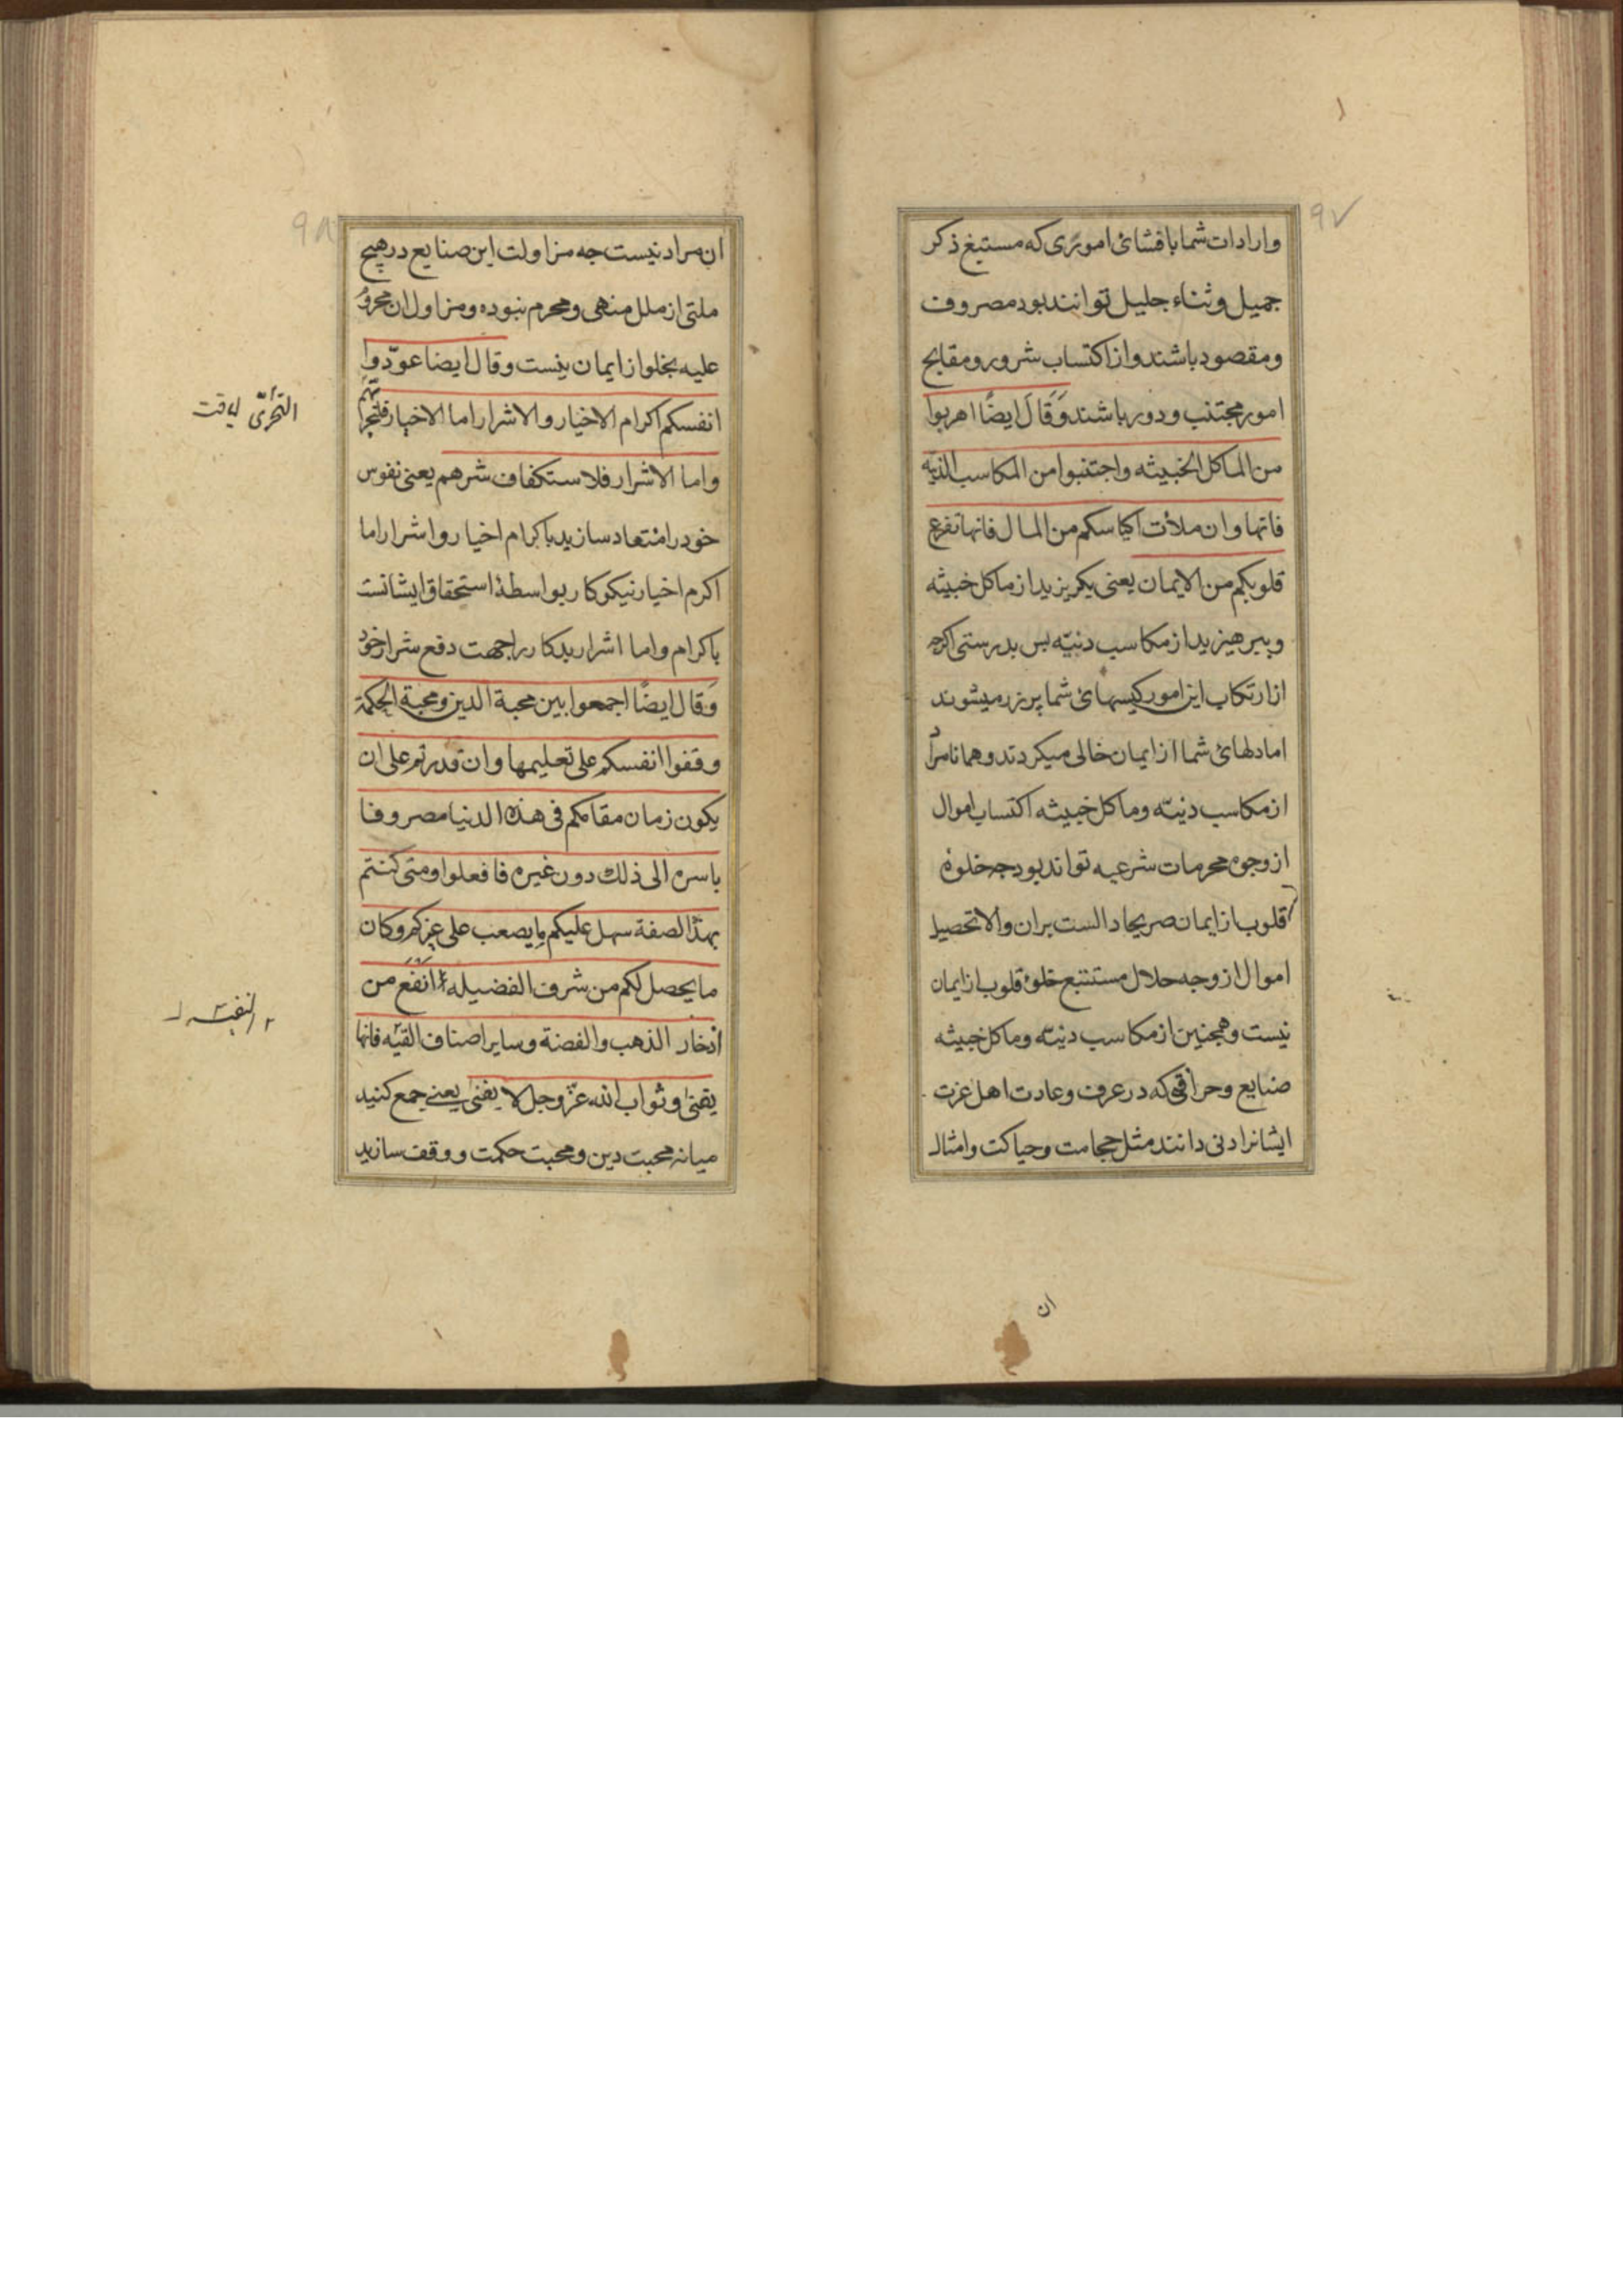 ۹۷
وارادات شما بافشائ اموری که مستتبع ذکر
جمیل وثناء جلیل توانند بود مصروف
ومقصود باشند واز اکتساب شرور ومقابح
امور مجتنب ودور باشند وَقَالَ ایضًا اهربوا
من الماکل الخبیثه واجتنبوا من المکاسب الدنیّه
فانها وان ملأت اکیاسکم من المال فانها تفرغ
قلوبکم من الایمان یعنی بکریزید از ماکل خبیثه
وبپرهیزید از مکاسب دنیّه بس بدرستی اکرچه
از ارتکاب این امور کیسهائ شما پر زر میشوند
اما دلهائ شما از ایمان خالی میکردند وهمانا مراد
از مکاسب دنیّه وماکل خبیثه اکتساب اموال
از وجوه محرمات شرعیه تواند بود چه خلوهٔ
قلوب از ایمان صریحا دالست بران والا تحصیل
اموال از وجه حلال مستتبع خلوء قلوب از ایمان
نیست وهمچنین از مکاسب دنیّه وماکل خبیثه
صنایع وحرافتی که در عرف وعادت اهل عزت
ایشانرا دنی دانند مثل حجامت وحیاکت وامثال
ان
۹۸
ان مراد نیست جه مزاولت این صنایع در هیچ
ملتی از ملل منهی ومحرم نبوده ومزاول ان محروُ
علیه بخلو از ایمان نیست وقال ایضا عوّدوا
انفسکم اکرام الاخیار والاشرار اما الاخیار
واما الاشرار فلاستکفاف شرهم یعنی نفوس
خود را متعاد سازید باکرام اخیار واشرار اما
اکرم اخیار نیکوکار بواسطهٔ استحقاق ایشانست
باکرام واما اشرار بدکار را جهت دفع شر از خود
وَقال ایضًا اجمعوا بین محبة الدین ومحبة الحکمة
وقفوا انفسکم علی تعلیمها وان قدرتم علی ان
یکون زمان مقامکم فی هذه الدنیا مصروفا
باسره الی ذلک دون غیره فافعلوا ومتی کنتم
بهذا الصفة سهل علیکم ما یصعب علی غیرکم وکان
ما یحصل لکم من شرف الفضیله انفع من
اذخار الذهب والفضة وسایر اصناف القنیه فانها
یفنی وثواب الله عزّ وجل لا یفنی یعنی جمع کنید
میانه محبت دین ومحبت حکمت ووقف سازید